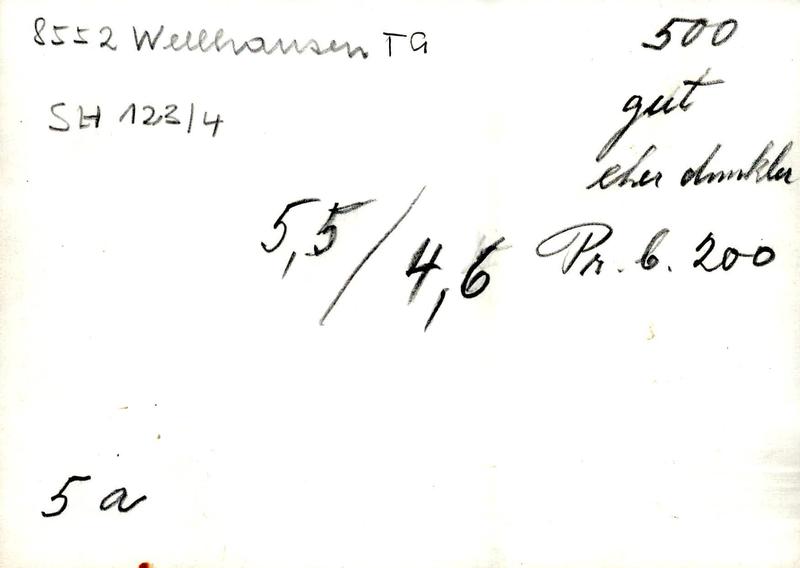 8552 Wellhausen TG
SH 123/4
500
gut
eher dunkler
5,5/4,6
Pr. b. 200
5 a